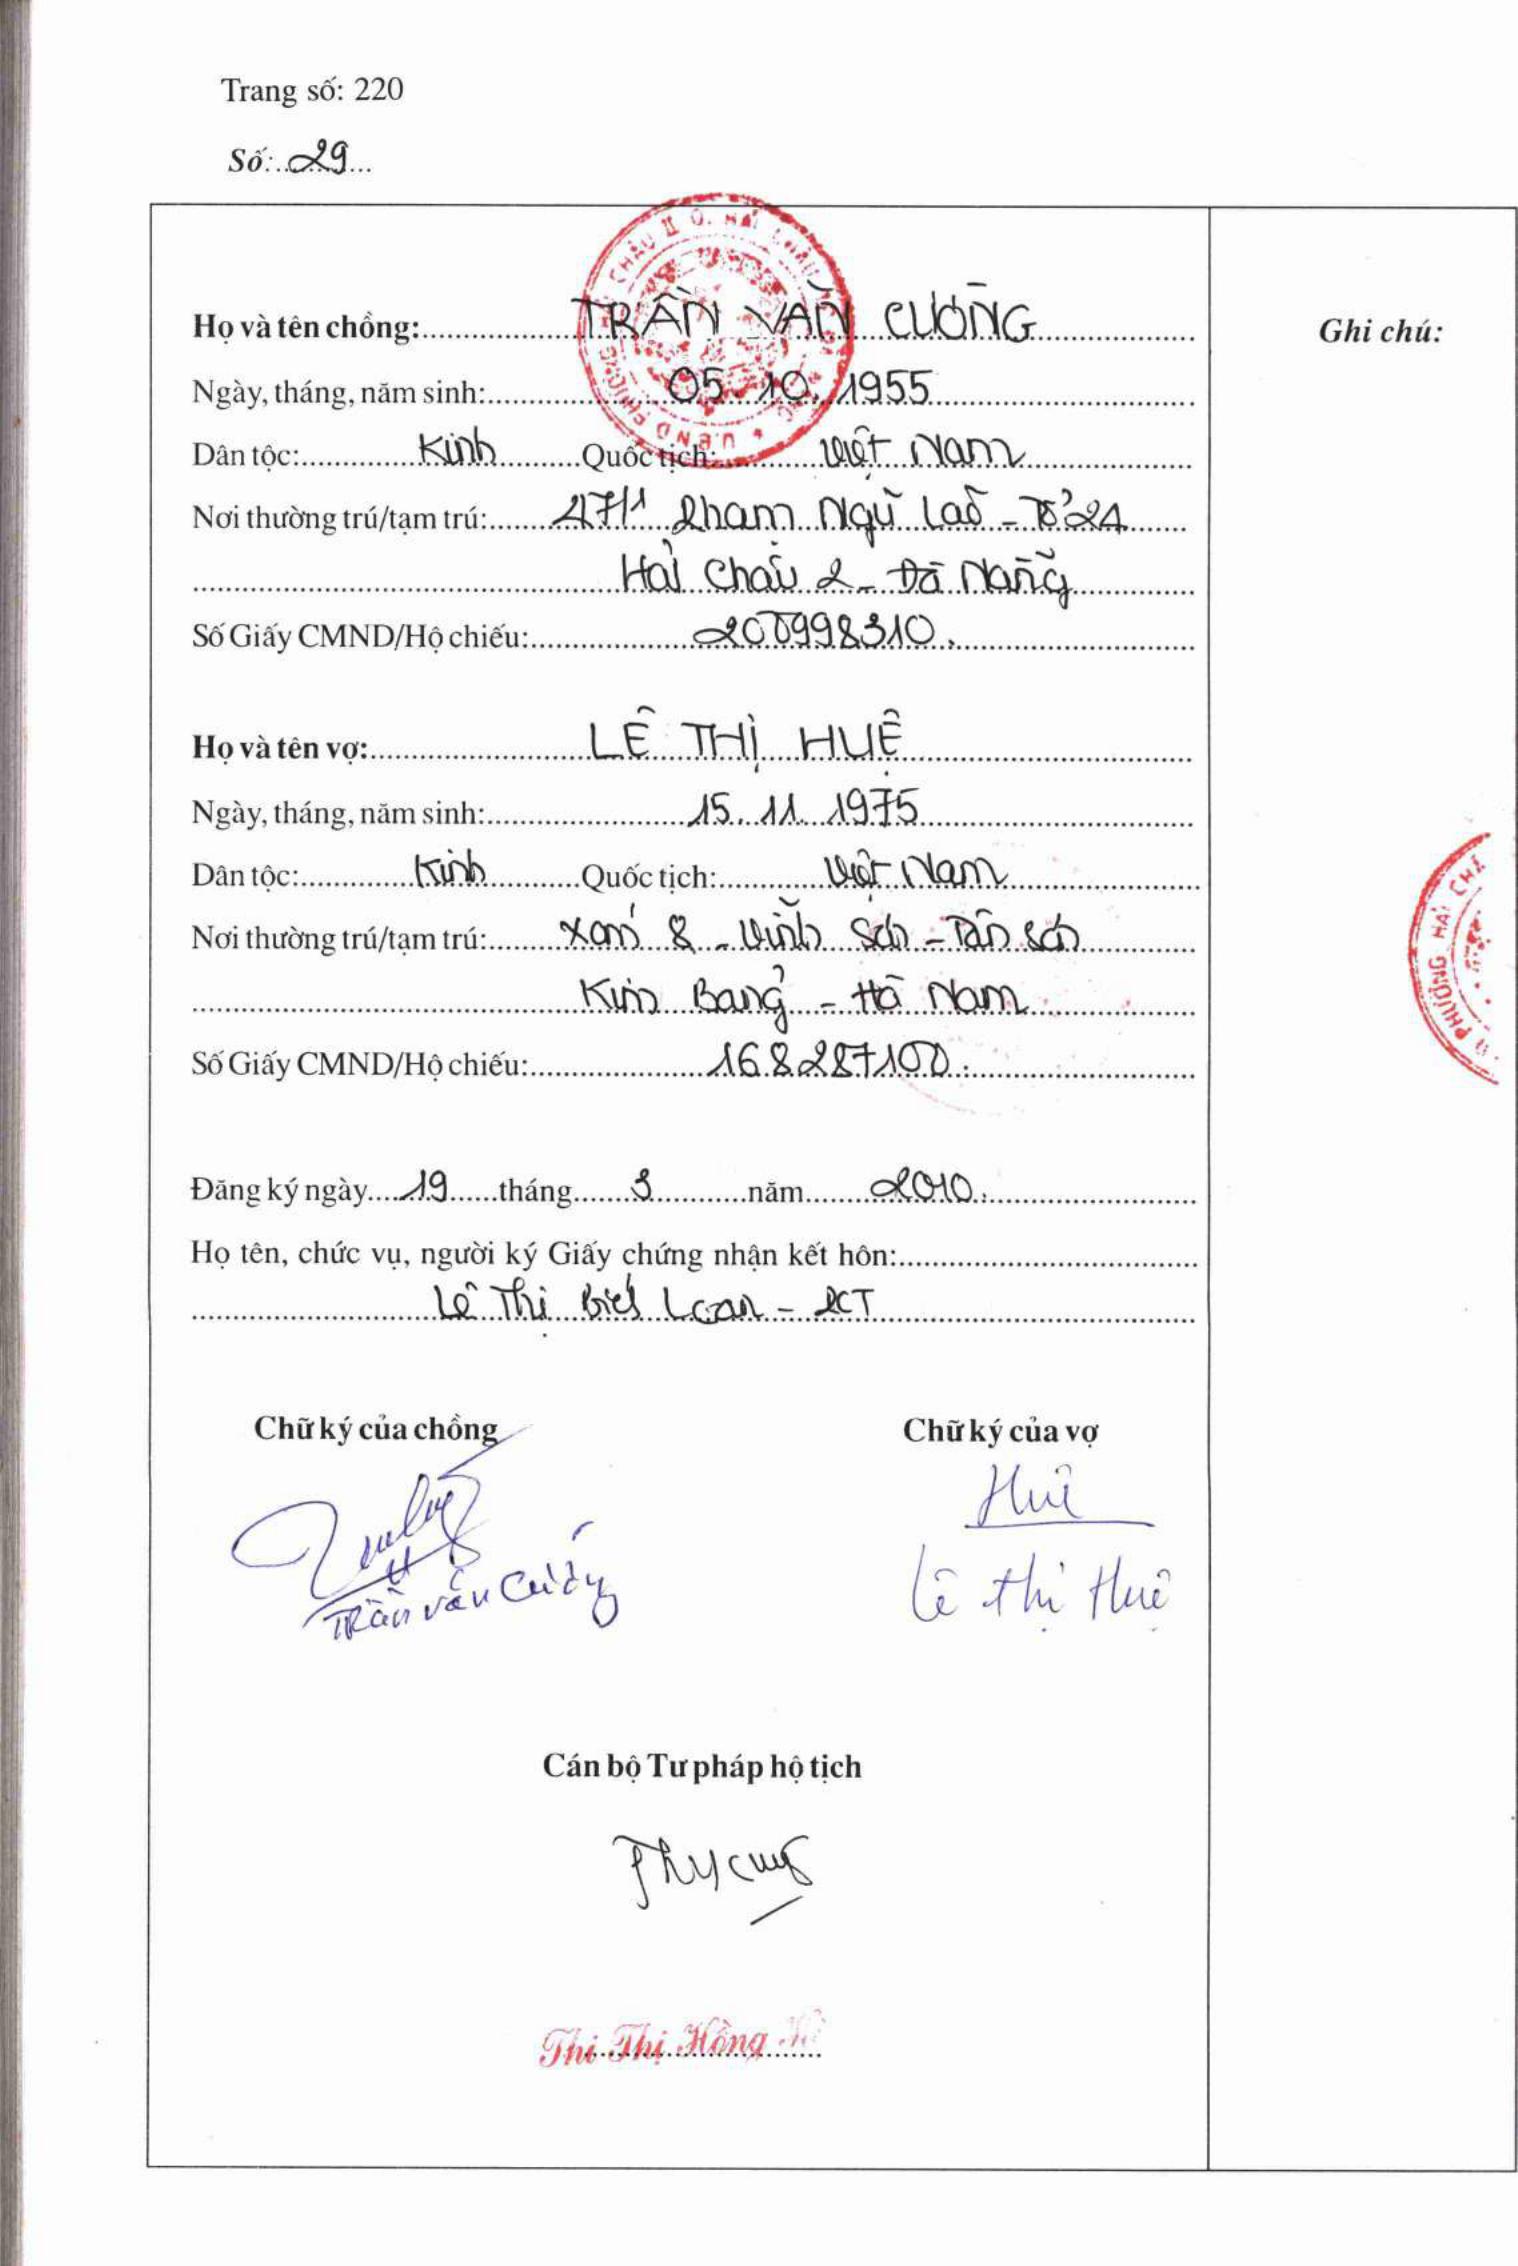 Trang số: 220
Số: 29
Họ và tên chồng: TRẦN VĂN CƯỜNG
Ghi chú:
Ngày, tháng, năm sinh: 05.10.1955
Dân tộc: Kinh Quốc tịch: Việt Nam
Nơi thường trú/tạm trú: 47/1 Phạm Ngũ Lão - Tổ 24
Hải Châu 2 - Đà Nẵng
Số Giấy CMND/Hộ chiếu: 200998310.
Họ và tên vợ: LÊ THỊ HUỆ
Ngày, tháng, năm sinh: 15.11.1975
Dân tộc: Kinh Quốc tịch: Việt Nam
Nơi thường trú/tạm trú: Xóm 8 - Vĩnh Sơn - Tân Sơn
Kim Bảng - Hà Nam
Số Giấy CMND/Hộ chiếu: 168287100.
PHƯỜNG HẢI
Đăng ký ngày 19 tháng 3 năm 2010.
Họ tên, chức vụ, người ký Giấy chứng nhận kết hôn:
Lê Thị Loan - PCT
Chữ ký của chồng Chữ ký của vợ
Huệ
Trần Văn Cường Lê Thị Huệ
Cán bộ Tư pháp hộ tịch
Thi Thị Hồng